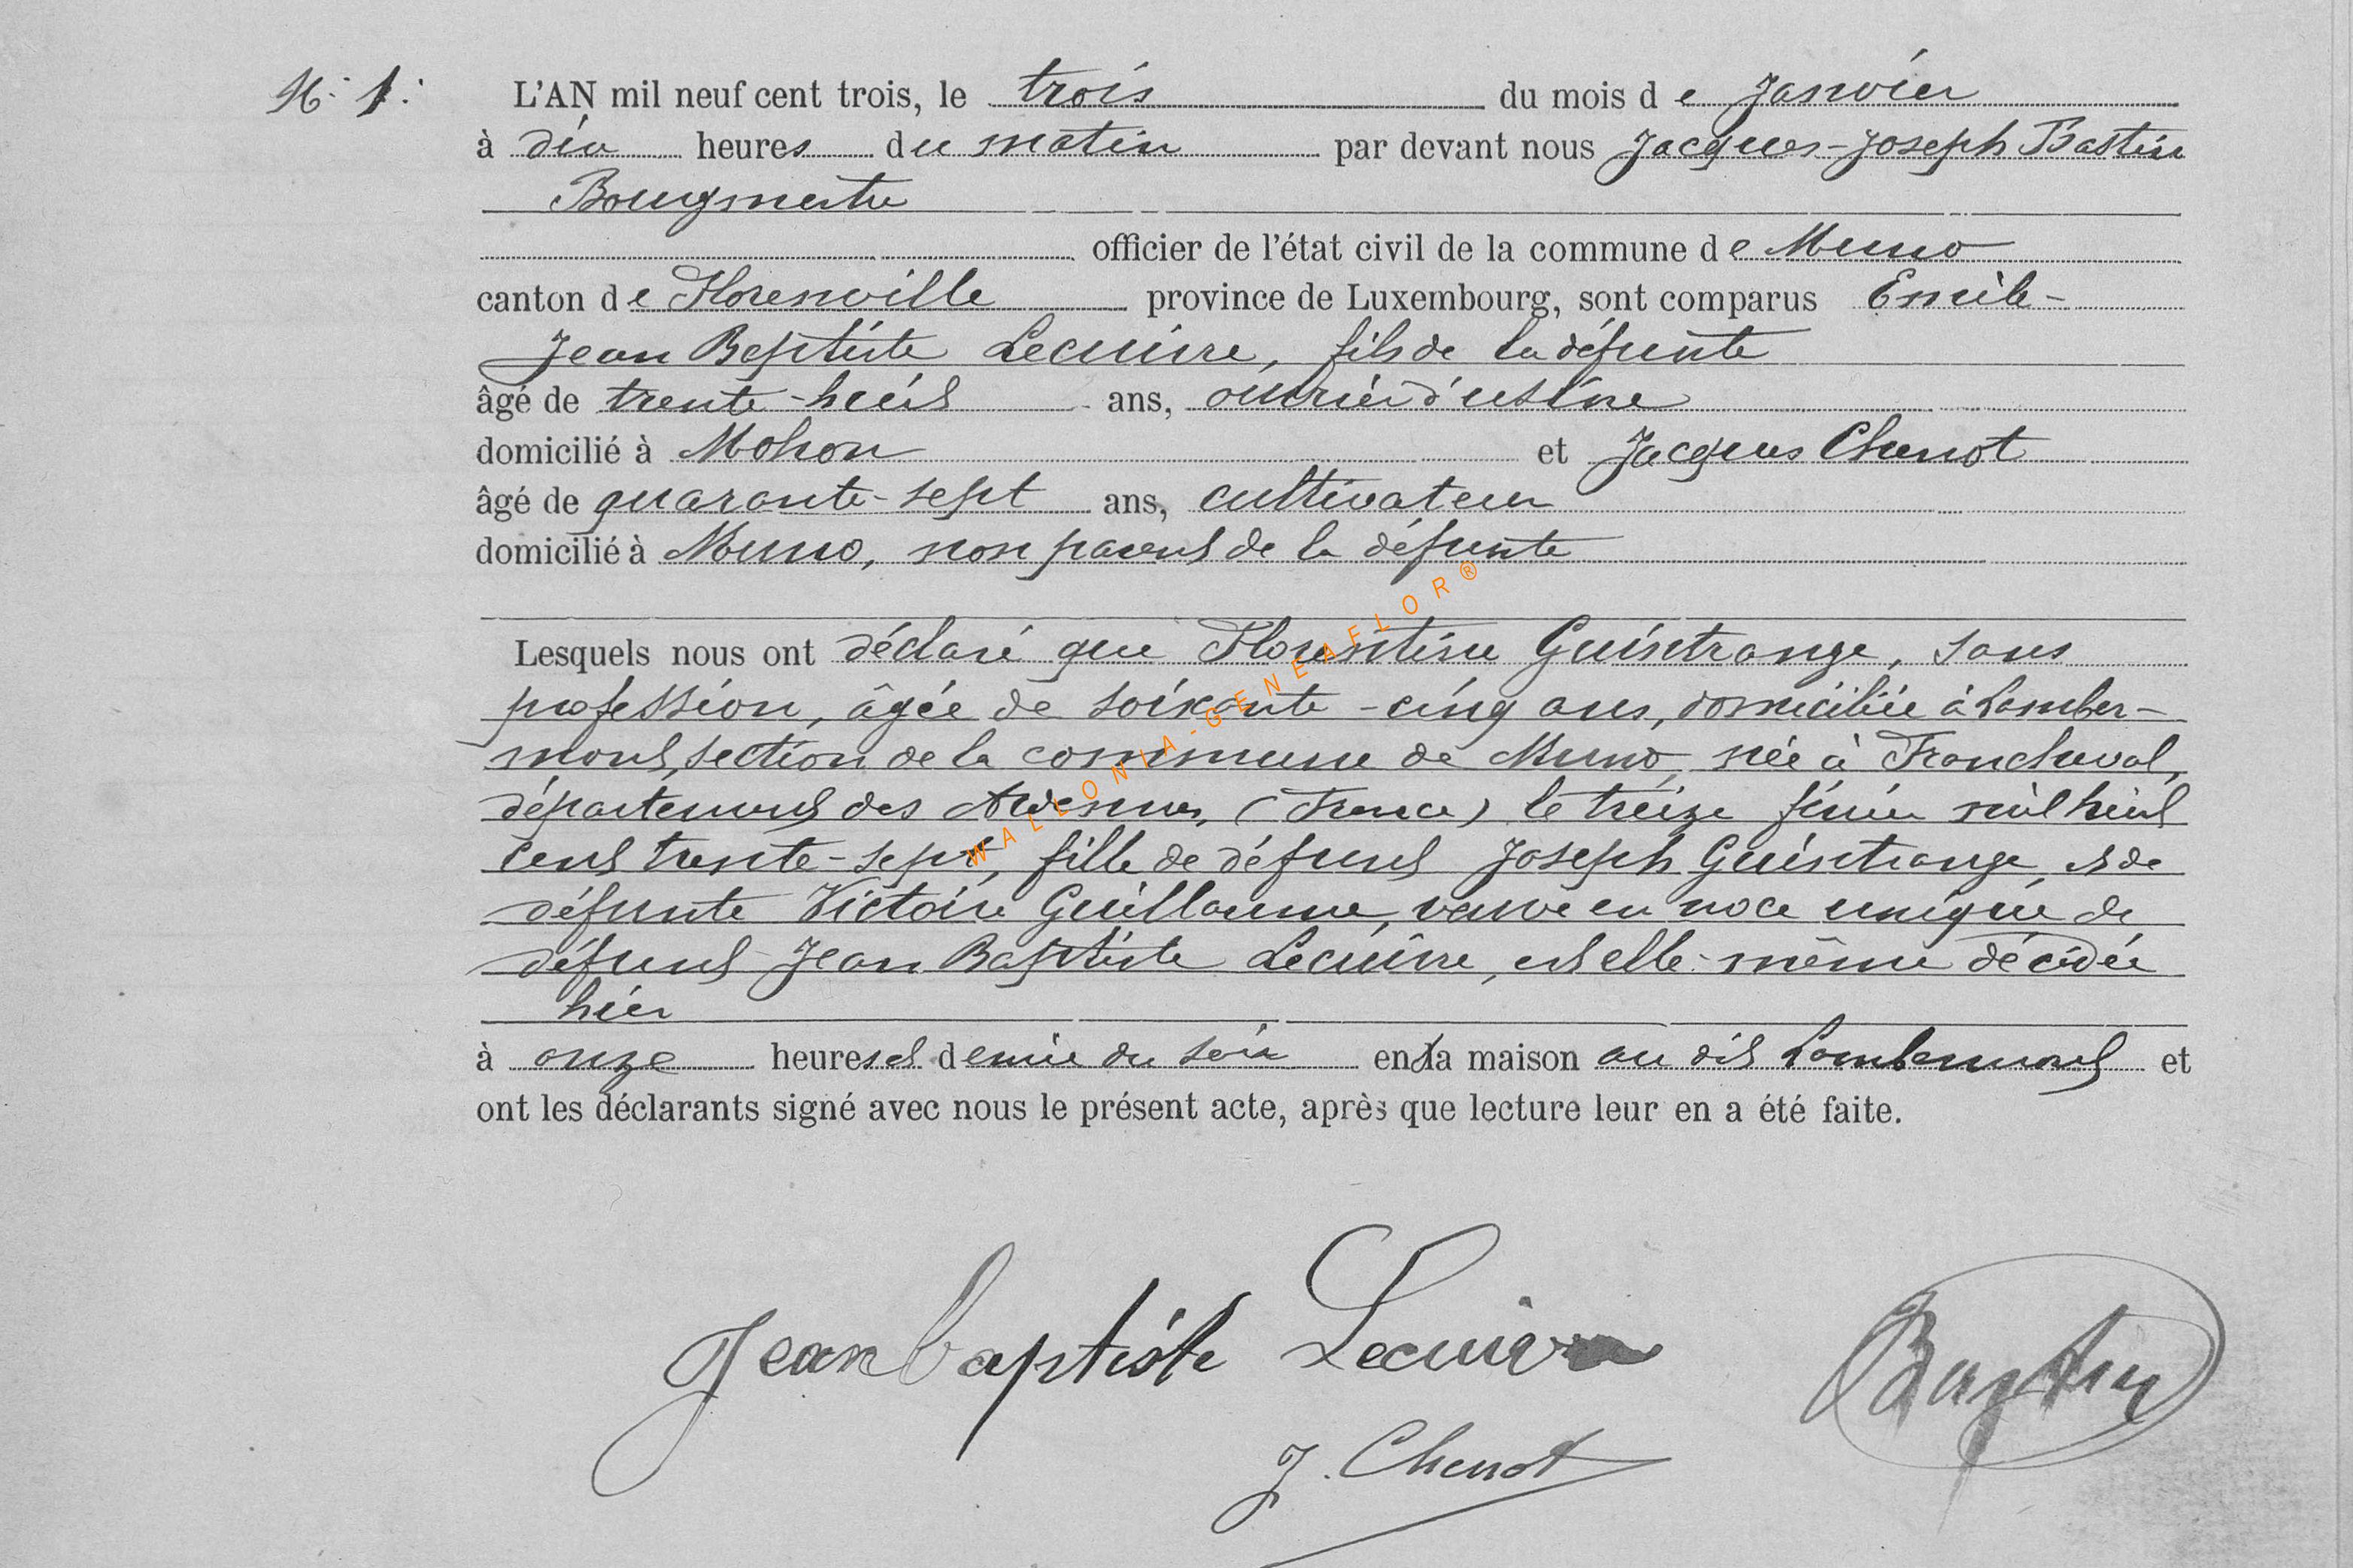 N: 1:
L'AN mil neuf cent trois, le trois du mois de Janvier
à dix heures du matin par devant nous Jacques-Joseph Bastin
Bourgmestre
officier de l'état civil de la commune de Muno
canton de Florenville province de Luxembourg, sont comparus Emile-
Jean Baptiste Lecuivre, fils de la défunte
âgé de trente-huit ans, ouvrier d'usine
domicilié à Mohon et Jacques Chenot
âgé de quarante-sept ans, cultivateur
domicilié à Muno, non parent de la défunte
Lesquels nous ont déclaré que Florentine Guinstrange, sans
profession, âgée de soixante-cinq ans, domiciliée à Lamber-
mont, section de la commune de Muno, née à Francheval,
département des Ardennes, (France) le treize février mil huit
cent trente-sept, fille de défunt Joseph Guinstrange, et de
défunte Victoire Guillaume, veuve en noce unique de
défunt Jean Baptiste Lecuivre, est elle-même décédée
hier
à onze heures et demie du soir en sa maison au dit Lambermont et
ont les déclarants signé avec nous le présent acte, après que lecture leur en a été faite.
WALLONIA-GENEAFLOR®
Jean baptiste Lecuivre
Bastin
J. Chenot